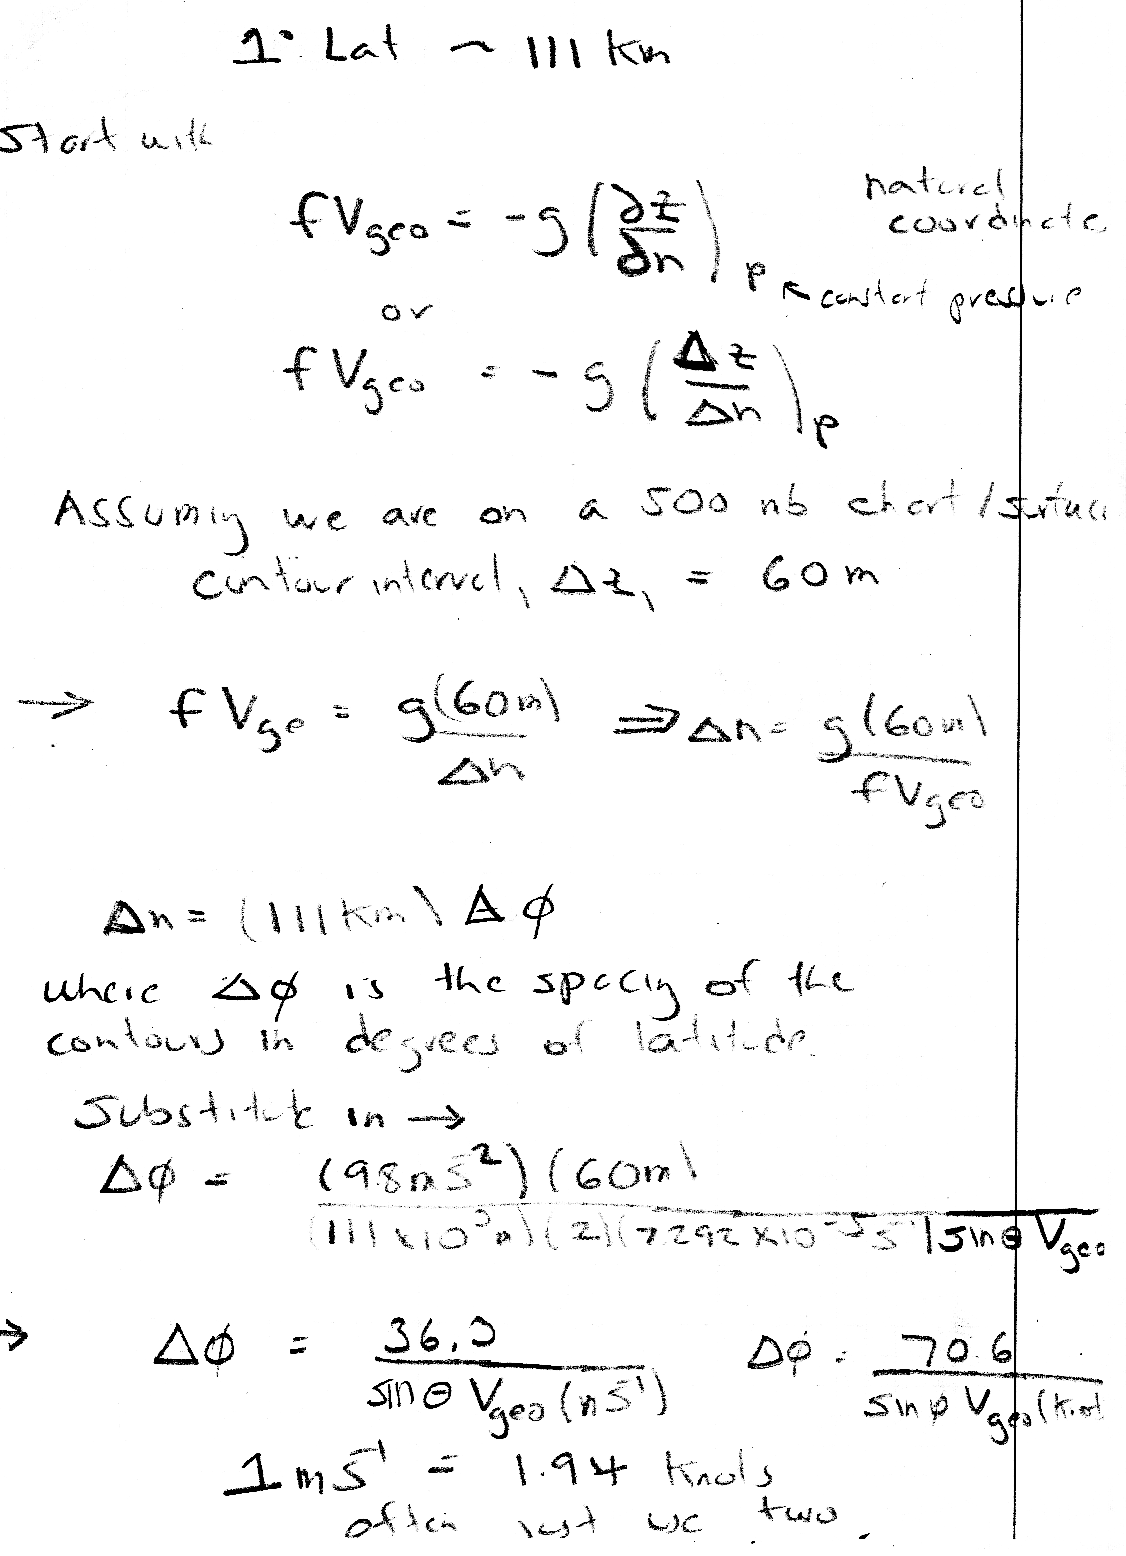 1° Lat ~ 111 km
Start with
natural
coordinate
fVgeo = -g (∂z/∂n)p ↖ constant pressure
or
fVgeo = -g (Δz/Δn)p
Assuming we are on a 500 mb chart/surface
contour interval, Δz, = 60 m
→ fVgeo = g(60m)/Δn ⟹ Δn = g(60m)/fVgeo
Δn = (111 km) Δφ
where Δφ is the spacing of the
contours in degrees of latitude.
Substitute in →
Δφ = (9.8 ms⁻²)(60m) / (111x10³m)(2)(7.292x10⁻⁵s⁻¹) sinθ Vgeo
→ Δφ = 36.3 / sinθ Vgeo (ms⁻¹) Δφ = 70.6 / sinφ Vgeo (knot
1 ms⁻¹ = 1.94 knots
often just use two.